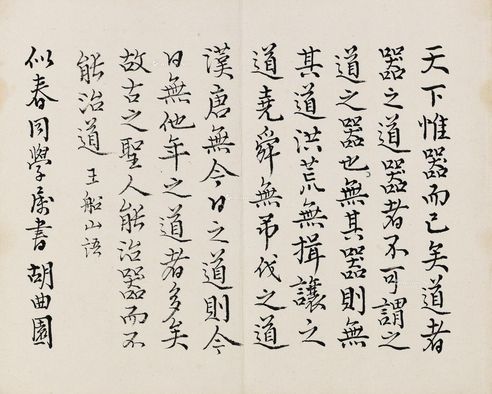 天下惟器而已矣道者
器之道器者不可謂之
道之器也無其器則無
其道洪荒無揖讓之
道堯舜無弔伐之道
漢唐無今日之道則今
日無他年之道者多矣
故古之聖人能治器而不
能治道 王船山語
似春同學屬書 胡曲園